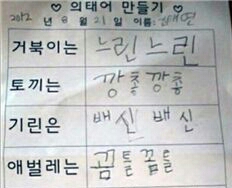 ♡ 의태어 만들기 ♡
2012 년 8 월 21 일 이름: 김태연
거북이는 느린 느린
토끼는 깡충 깡충
기린은 배신 배신
애벌레는 꿈틀 꿈틀